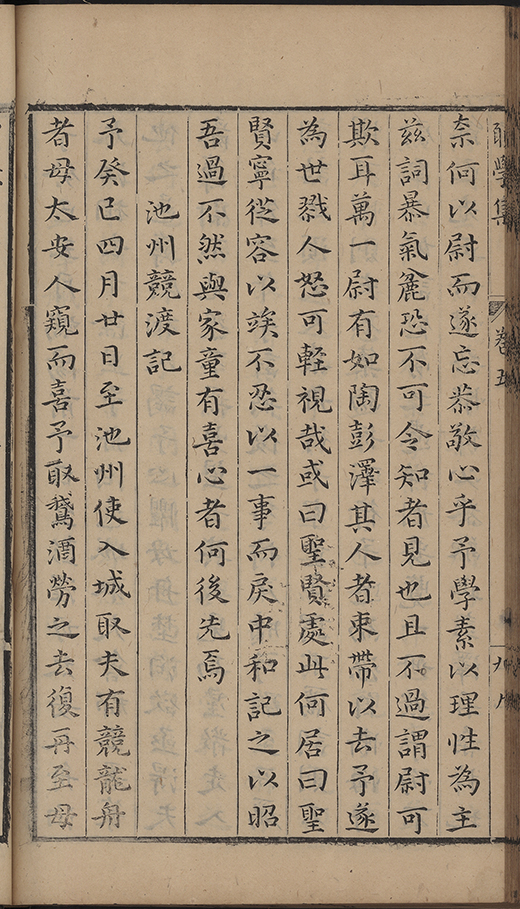 學集
卷五
奈何以尉而遂忘恭敬心乎予學素以理性為主
兹詞暴氣麄恐不可令知者見也且不過謂尉可
欺耳萬一尉有如陶彭澤其人者束帶以去予遂
為世戮人怒可輕視哉或曰聖賢處此何居曰聖
賢寧從容以竢不忍以一事而戾中和記之以昭
吾過不然與家童有喜心者何後先焉
池州競渡記
予癸巳四月廿日至池州使入城取夫有競龍舟
者母太安人窺而喜予取鵞酒勞之去復再至母